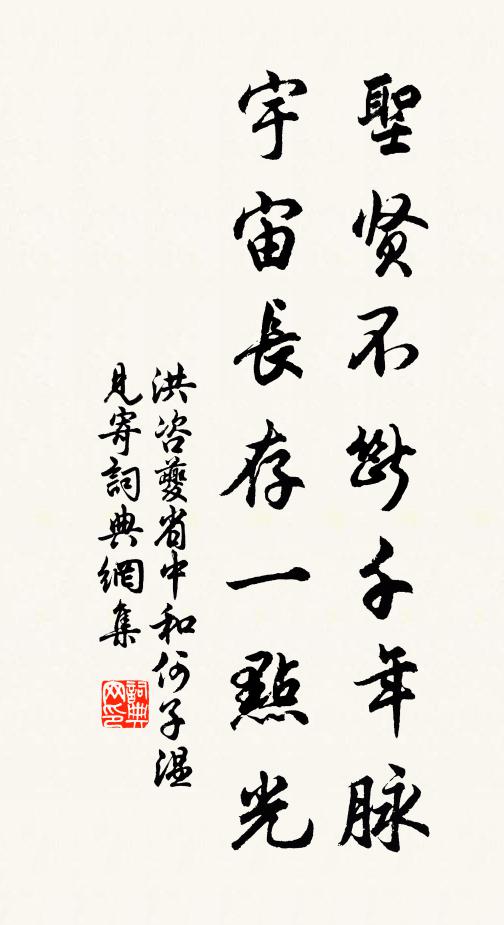 聖贤不斷千年脉
宇宙長存一點光
洪咨夔省中和何子温
見寄詞典網集
詞典
网印